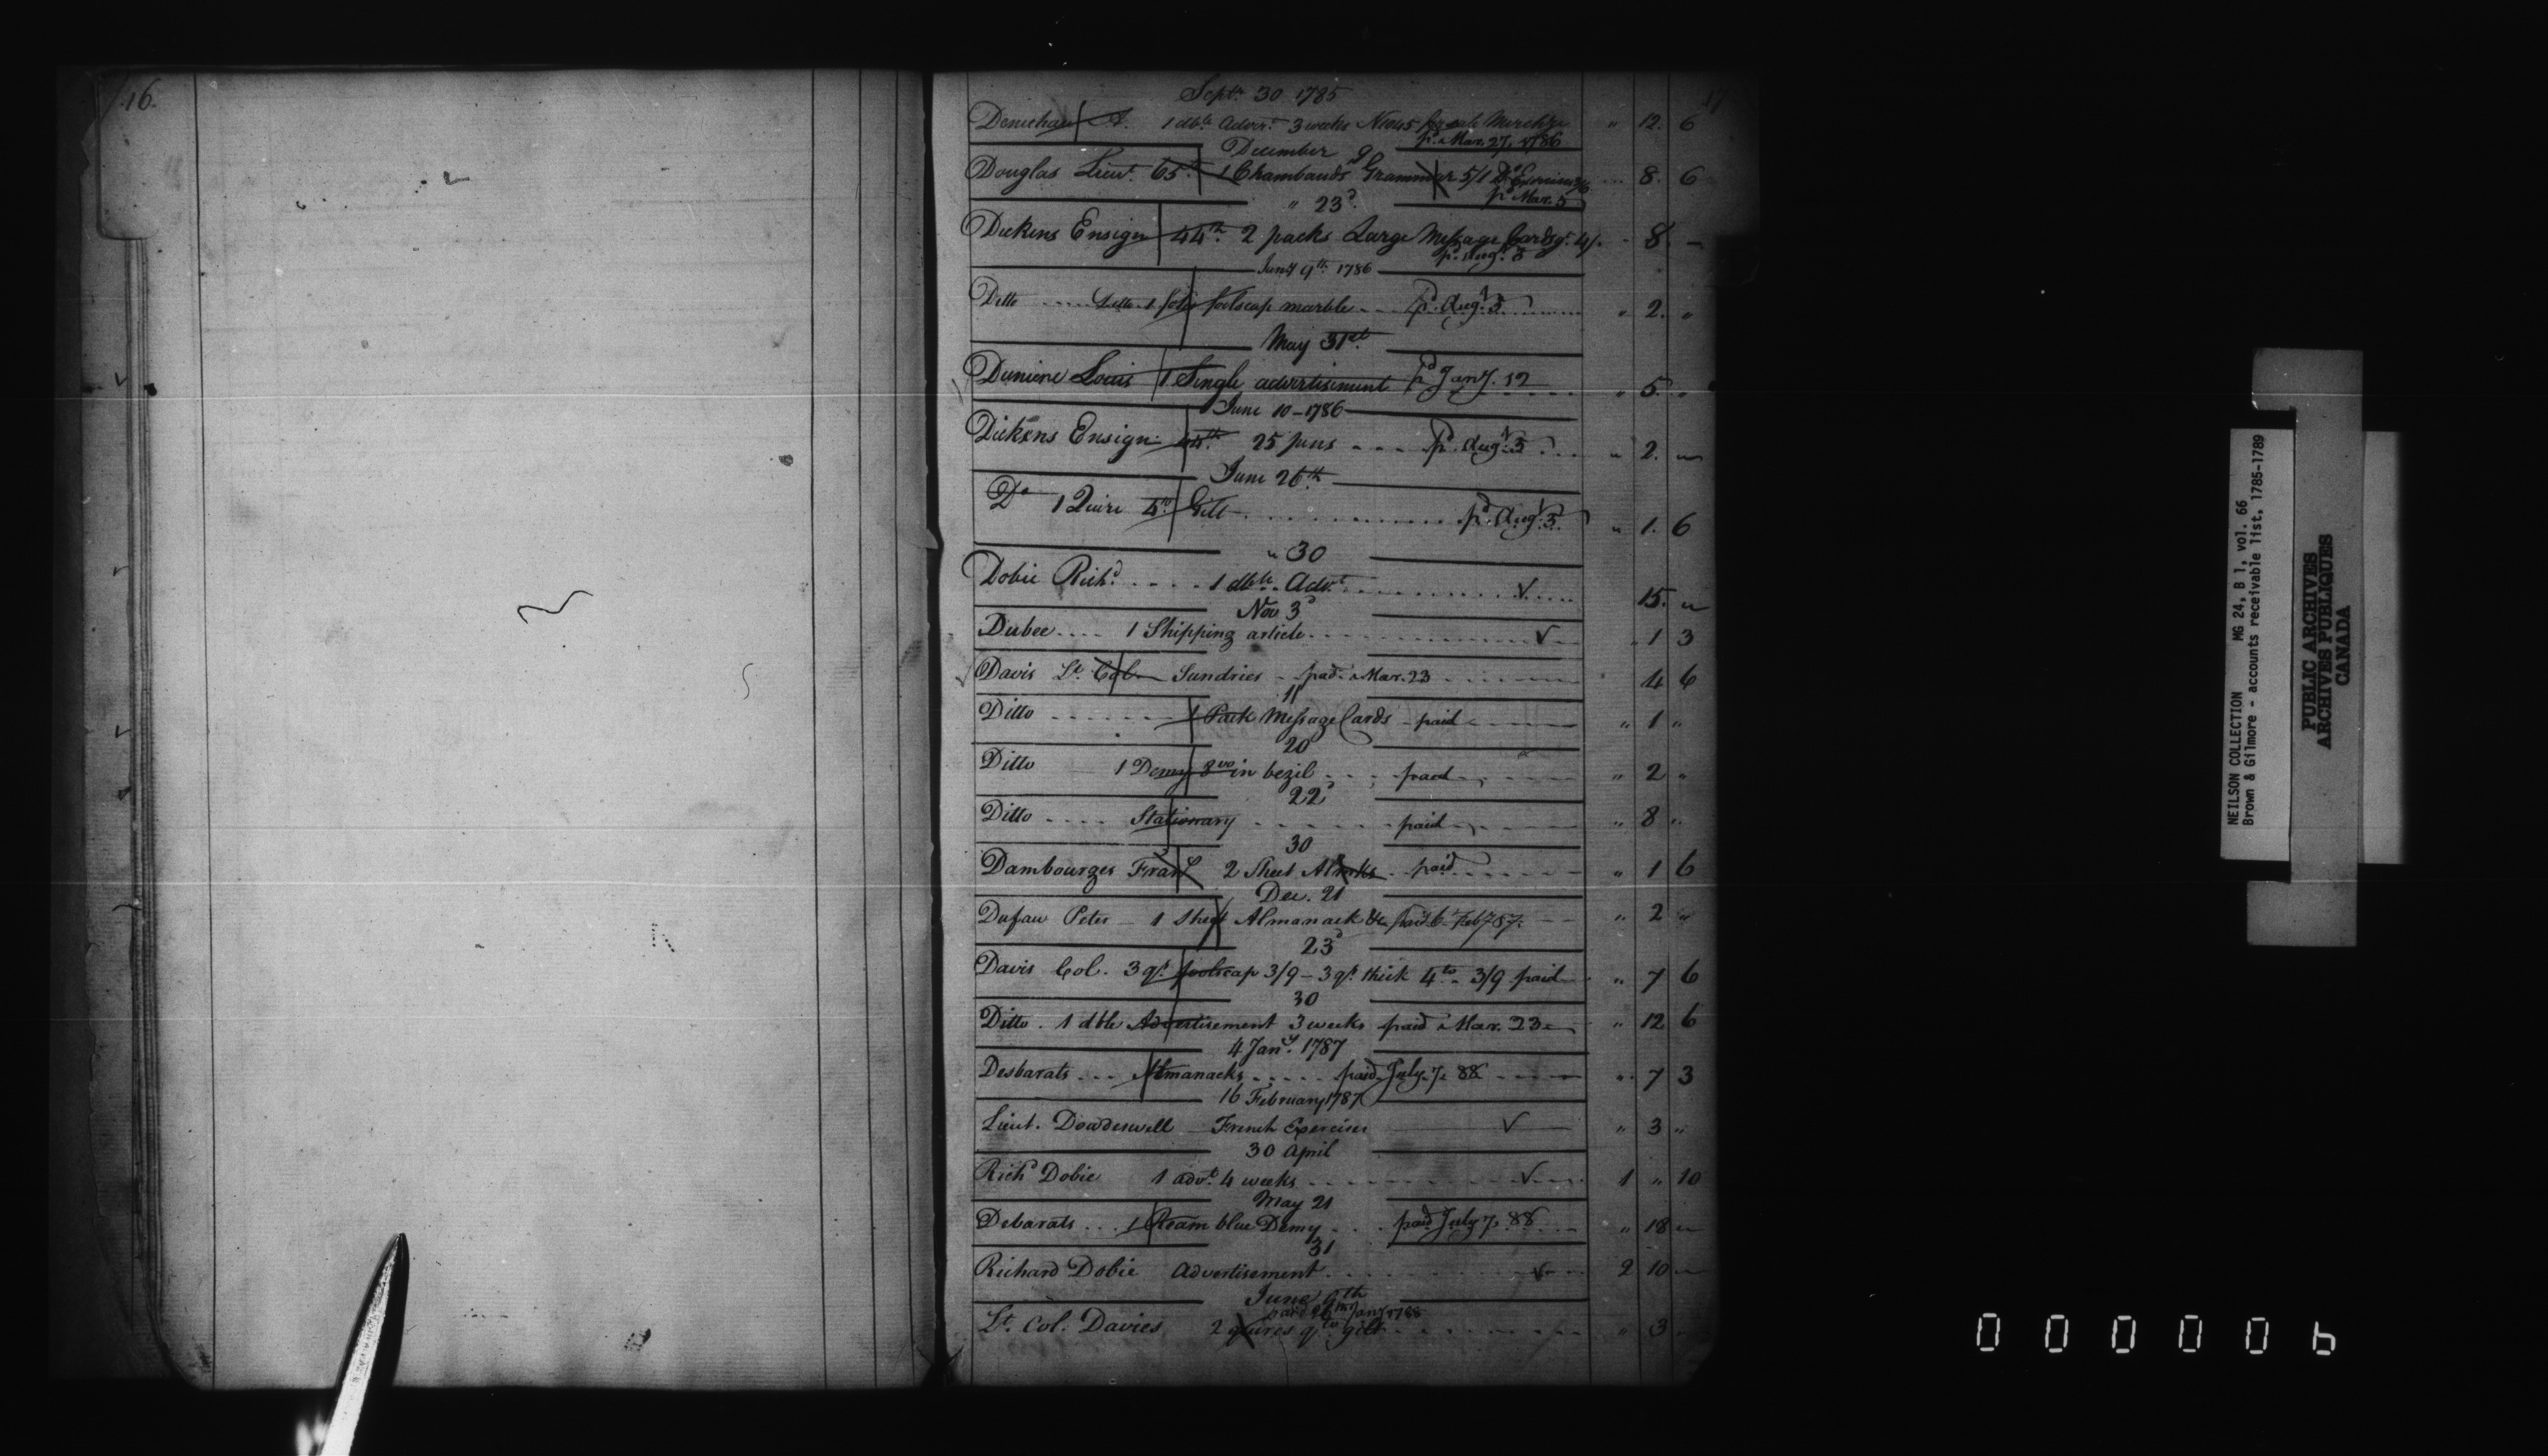 16
17
Septr. 30 1785
Denichau A. 1 dble. Adver.t 3 weeks No 1045 for sale Merchze " 12. 6
pd. Mar. 27. 1786
December 9
Douglas Lieut. 65th 1 Chambauds Grammar 5/ 1 Do. Exercises 3/6 ... 8. 6
pd Mar. 5
" 23d.
Dickens Ensign 44th. 2 packs Large Message Cards gt. 4/. - 8. -
pd. Augt. 3
Jany 9th. 1786
Ditto .... Ditto. 1 folio foolscap marble - - - pd. Augt. 3. " 2. "
May 31st.
Duniere Louis 1 Single advertisement pd Jany. 12 " 5. "
June 10 - 1786
Dickens Ensign 44th. 25 pens - - - - pd. Augt. 3 " 2. "
June 26th
Do 1 Quire 4to. Gilt . . . . pd. Augt. 3. " 1. 6
" 30
Dobie Richd. . . . . 1 dble. Advt. . . . . ✓ 15. "
Nov 3d
Dubec .... 1 Shipping article . . . . ✓ " 1 3
Davis Lt. Col. Sundries - paid. Mar. 23 4 6
11
Ditto . . . . 1 Pack Message Cards - paid " 1 "
20
Ditto 1 Demy 8vo in bezil . . . paid " 2 "
22d
Ditto .... Stationary . . . . paid " 8 "
30
Dambourges Frans 2 Sheet Almks . . paid " 1 6
Dec. 21
Dufau Peter - 1 Sheet Almanack &c paid 6 Feby 87. " 2 "
23d
Davis Col. 3 qrs. foolscap 3/9 - 3 qrs. thick 4to. 3/9 paid " 7 6
30
Ditto. 1 dble Advertisement 3 weeks paid Mar. 23 " 12 6
4 Jany. 1787
Desbarats ... Almanacks . . . . paid July. 7. 88 " 7 3
16 February 1787
Lieut. Dowdeswell French Exercises ✓ " 3 "
30 April
Richd Dobie 1 advt. 4 weeks . . . . ✓ 1 " 10
May 21
Debarats ... 1 Ream blue Demy . . . paid July 7, 88 " 18 "
31
Richard Dobie Advertisement . . . . ✓ 2 10 "
June 9th
paid 26th Jany 1788
Lt. Col. Davies 2 quires qto gilt . . . . " 3
NEILSON COLLECTION MG 24, B 1, vol. 66
Brown & Gilmore - accounts receivable list, 1785-1789
PUBLIC ARCHIVES
ARCHIVES PUBLIQUES
CANADA
000006